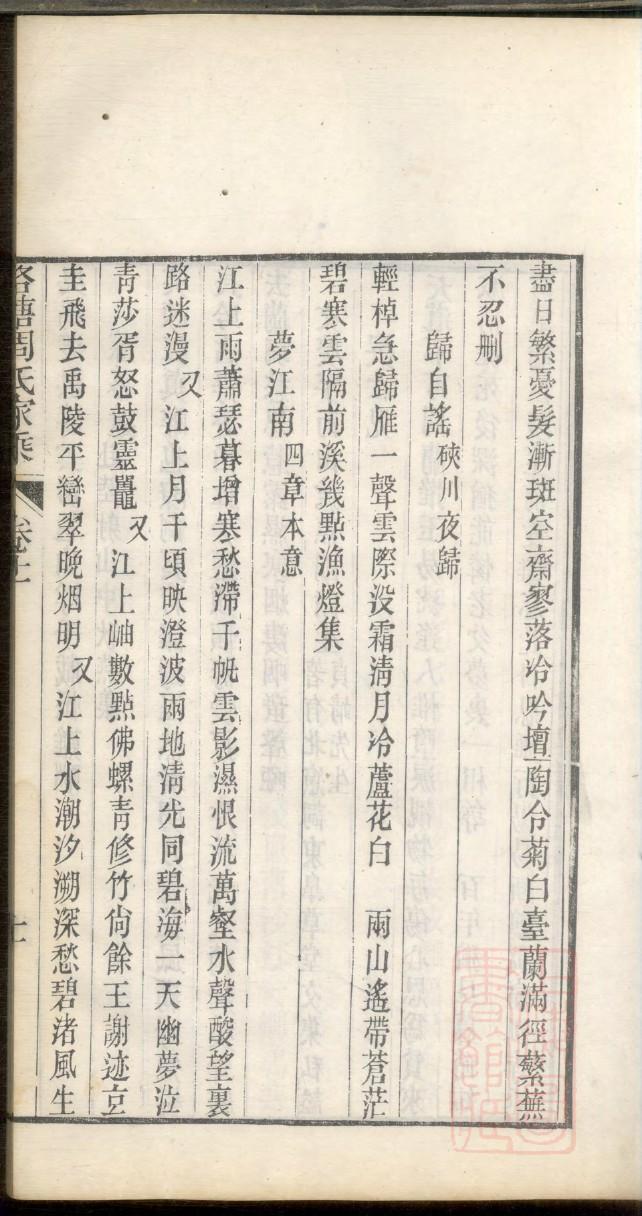 盡日繁憂髮漸斑空齋寥落冷吟壇陶令菊白臺蘭滿徑縈蕪
不忍刪
歸自謠 硤川夜歸
輕棹急歸雁一聲雲際没霜淸月冷蘆花白　兩山遙帶蒼茫
碧寒雲隔前溪幾點漁燈集
夢江南 四章本意
江上雨蕭瑟暮增寒愁滯千帆雲影濕恨流萬壑水聲酸望裏
路迷漫 又 江上月千頃映澄波兩地淸光同碧海一天幽夢泣
靑莎胥怒鼓靈鼉 又 江上岫數點佛螺靑修竹尙餘王謝迹亰
圭飛去禹陵平巒翠晚烟明 又 江上水潮汐溯深愁碧渚風生
洛塘周氏家乘　卷十　十